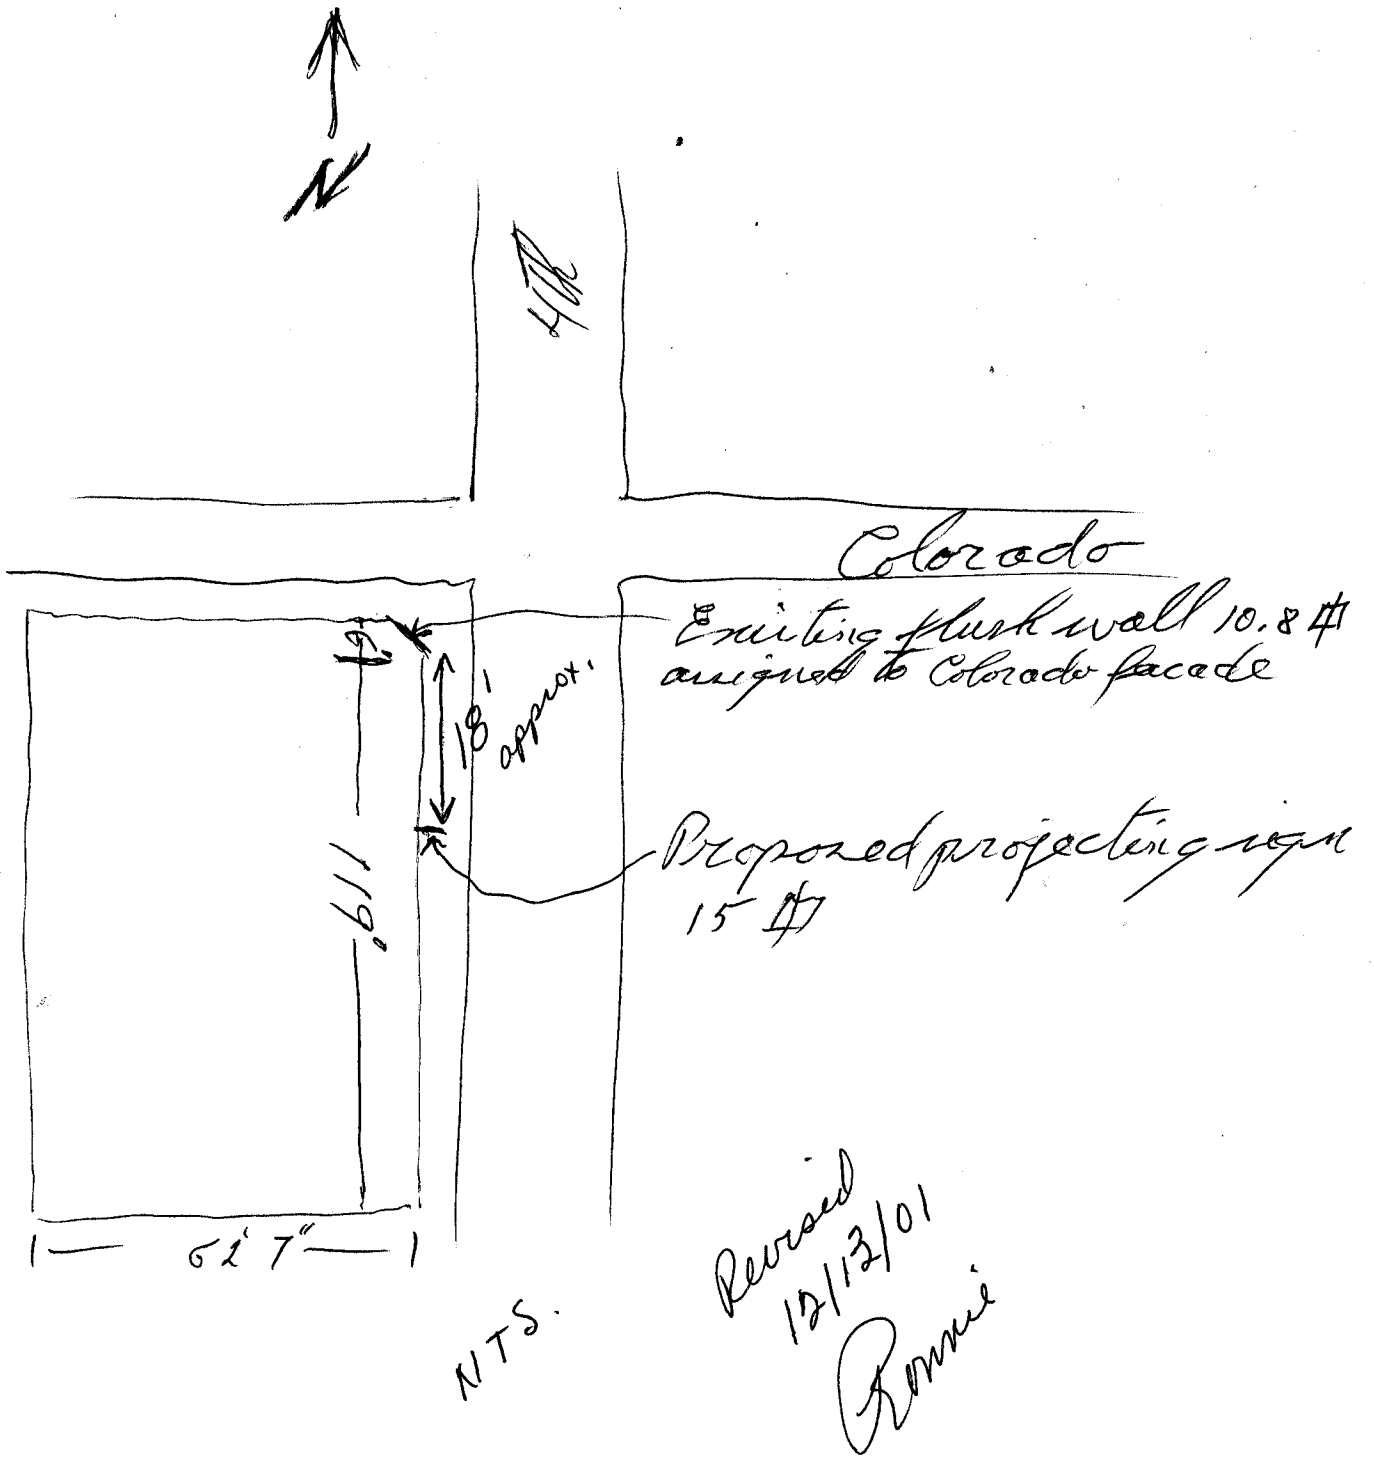 N
4th
Colorado
Existing flush wall 10.8 #
assigned to Colorado facade
18'
approx.
119'
Proposed projecting sign
15 #
62' 7"
NTS.
Revised
12/13/01
Ronnie